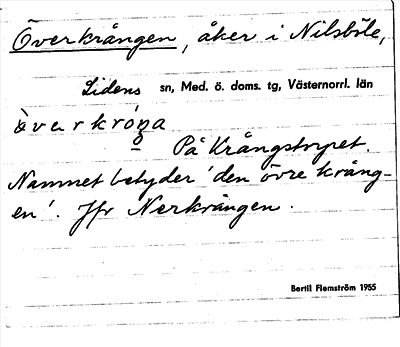 Överkrången, åker i Nilsböle,
Lidens sn, Med. ö. doms. tg, Västernorrl. län
På Krångstrypet.
Namnet betyder 'den övre krång-
en'. Jfr Nerkrången.
Bertil Flemström 1955